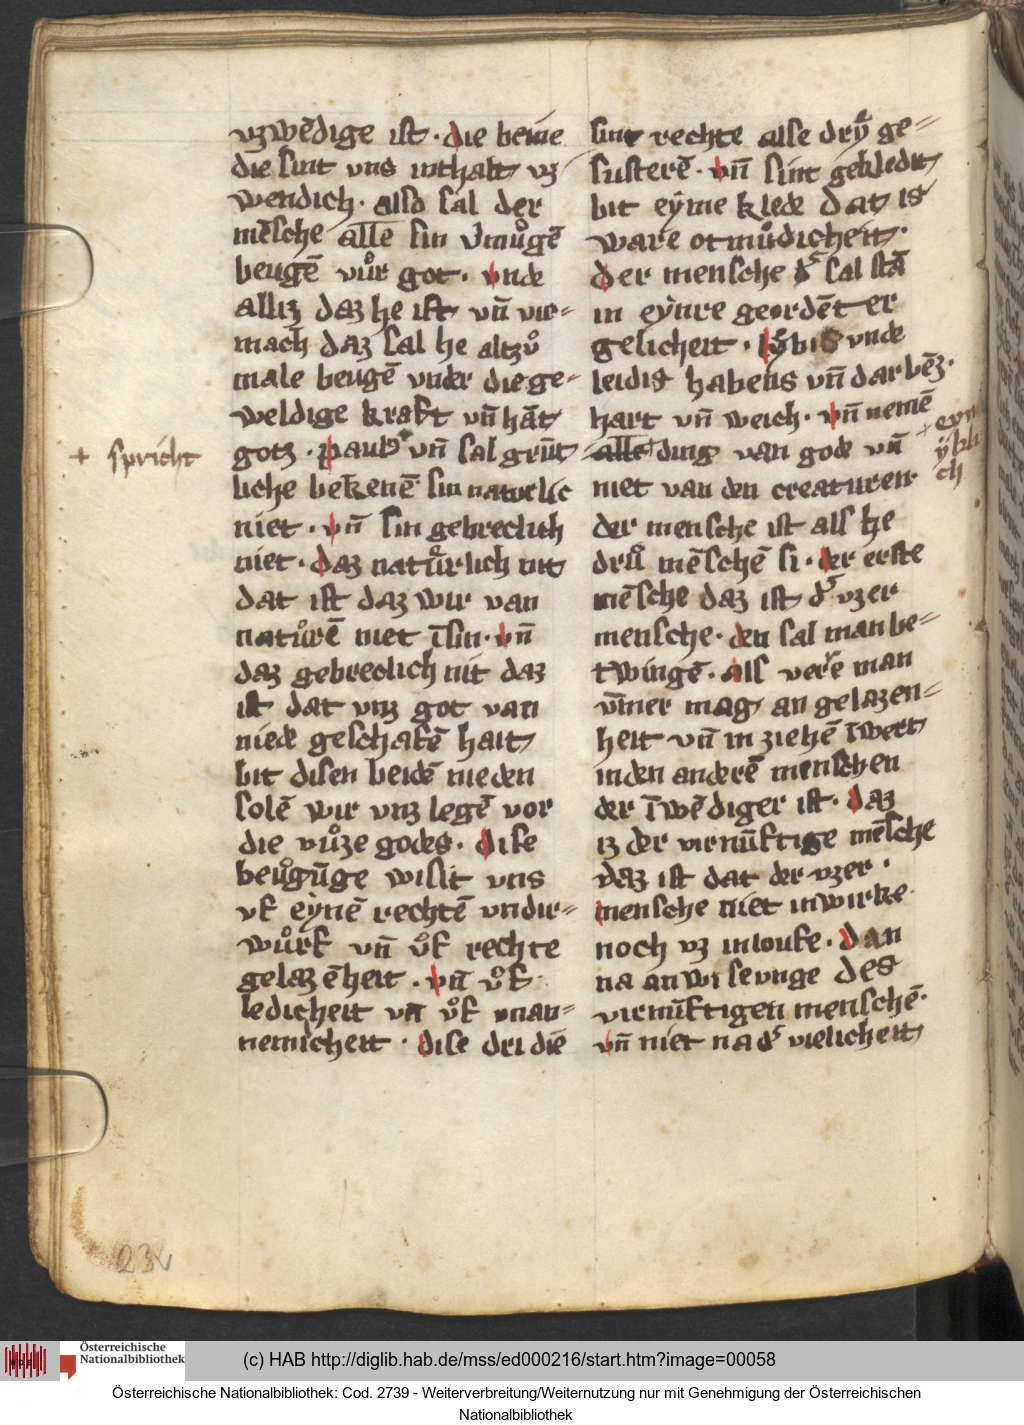 vzwēdige ist · die beine
die sint vns inthalt vz
wendich · also sal der
mēsche alle sin v̄muͦgē
beugē vuͦr got · vnde
alliz daz he ist vn̄ vir=
mach daz sal he altzuͦ
male beugē vnder die ge=
weldige kraft vn̄ hāt
gotz · paul9 vn̄ sal grūt=
+ spricht
liche bekenē sin naturlic
niet · vn̄ sin gebreclich
niet · daz natuͤrlich nit
dat ist daz wir van
natuͦrē niet īsin · vn̄
daz gebreclich nit daz
ist dat vnz got van
niede geschafē hait
bit disen beidē nieden
solē wir vnz legē vor
die vuͦze godes · dise
beuͦgūge wisit vns
vf eẏnē rechtē vndir=
wuͦrf vn̄ vͦf rechte
gelazēheit · vn̄ vͦf
ledicheit vn̄ vͦf vnan=
nemicheit · dise dri diē
sint rechte alse drẏ ge=
susterē · vn̄ sint gekledit
bit eẏme klede dat is
ware otmuͦdicheit ·
der mensche dʾ sal stā
in eẏnre geordēter
gelicheit · lẏbis vnde
leidis habens vn̄ darbēz ·
hart vn̄ weich · vn̄ nemē
alle + ding van gode vn̄
niet van den creaturen
der mensche ist als he
drii mēschē si · der erste
mēsche daz ist dʾ vzer
mensche · den sal man be=
twingē · als verre man
v̄mer mag an gelazen=
heit vn̄ in ziehē īwert
in den anderē menschen
der īwēdiger ist · daz
iz der virnūftige mēsche
daz ist dat der vzer ·
mensche niet inwirke ·
noch vz inloufe · dan
na anwisunge des
virnūftigen menschē ·
vn̄ niet na dʾ vielicheit
23v
Österreichische
Nationalbibliothek
(c) HAB http://diglib.hab.de/mss/ed000216/start.htm?image=00058
Österreichische Nationalbibliothek: Cod. 2739 - Weiterverbreitung/Weiternutzung nur mit Genehmigung der Österreichischen
Nationalbibliothek